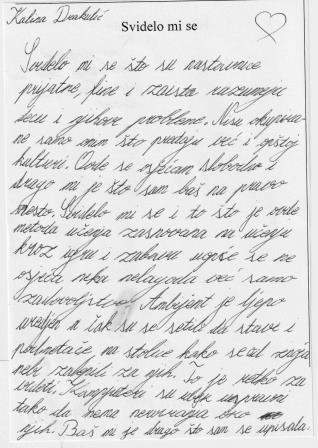 Kalina Drakulić
Svidelo mi se
Svidelo mi se što su nastavnice
prijatne, fine i zaista razumeju
decu i njihove probleme. Nisu okupira-
ne samo onim što predaju već i opštoj
kulturi. Ovde se osjećam slobodno i
drago mi je što sam baš na pravo
mesto. Svidelo mi se i to što je ovde
metoda učenja zasnovana na učenju
kroz igru i zabavu uopšte se ne
osjeća neka nelagoda već samo
zadovoljstvo. Ambijent je ljepo
uredjen a čak su se setili da stave i
podmetače na stolice kako se od
nebi zalepili za njih. To je retko za
videti. Kompjuteri su
tako da nema nerviranja oko
njih. Baš mi je drago što sam se upisala.